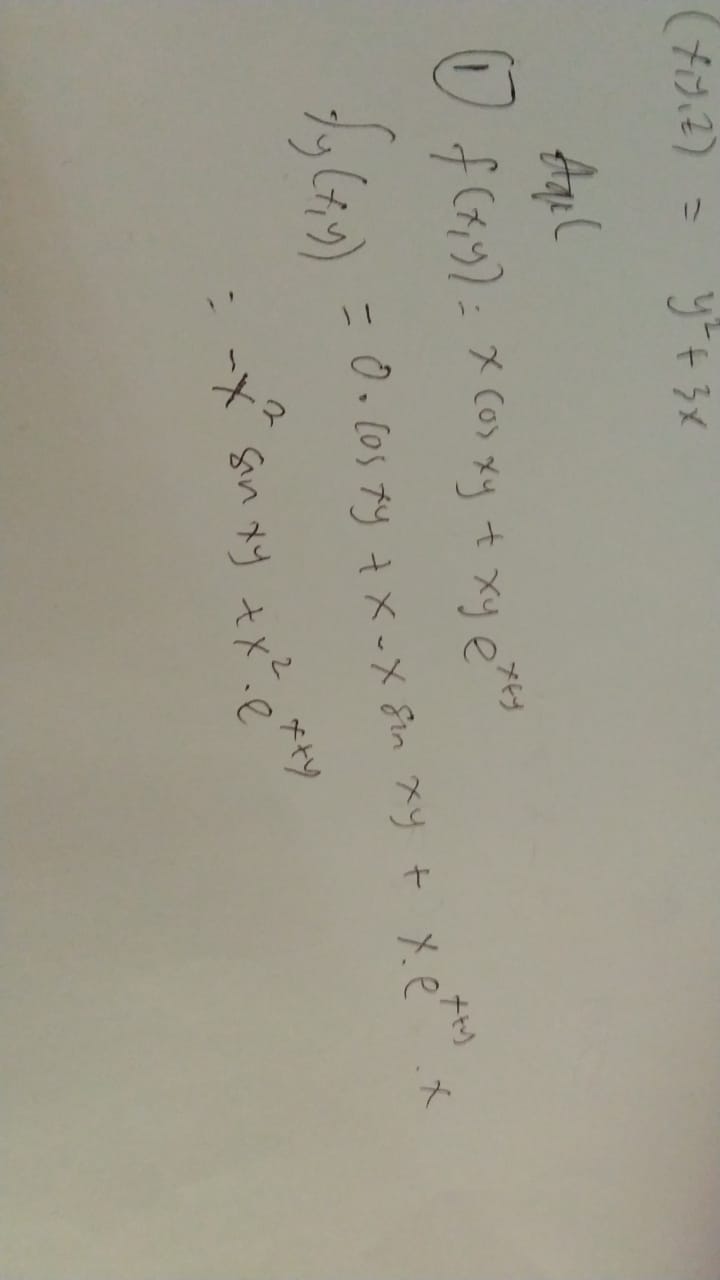 (x,y,z) = y² + 3x
① f(x,y) = x cos xy + xy e^{x+y}
f_y(x,y) = 0 . cos xy + x - x sin xy + x . e^{x+y} . x
= -x² sin xy + x² . e^{x+y}